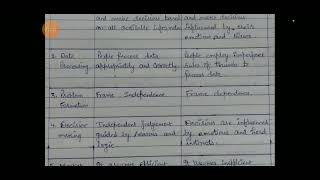 and makes decisions based and makes decisions
on all available information influenced by their
emotions and biases.
2. Data People process data People employ imperfect
Processing appropriately and correctly. rules of thumb to
process data
3. Problem Frame Independence Frame dependence.
Formation
4. Decision Independent judgement Decisions are influenced
making guided by reasons and by emotions and herd
logic. instincts.